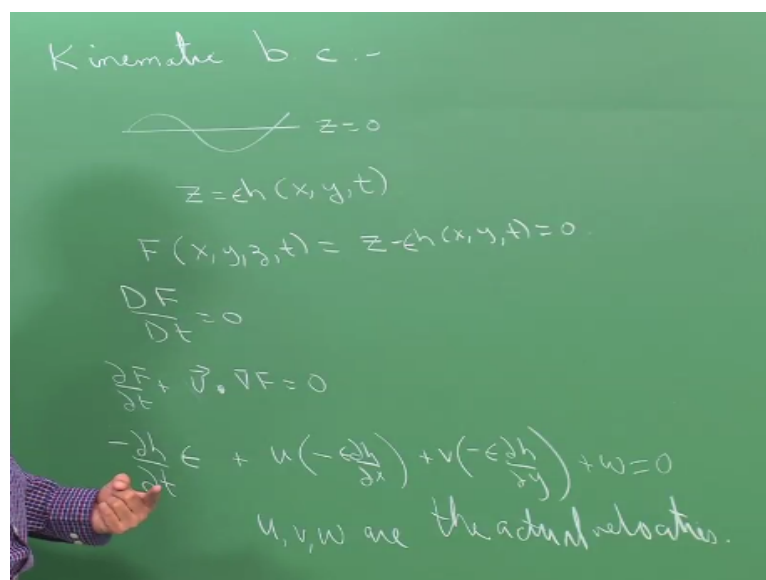 Kinematic b.c.-
z=0
z=ϵh(x,y,t)
F(x,y,z,t)= z-ϵh(x,y,t)=0.
DF/Dt=0
∂F/∂t + v⃗.∇F=0
-∂h/∂t ϵ + u(-ϵ∂h/∂x)+v(-ϵ∂h/∂y)+w=0
u,v,w are the actual velocities.